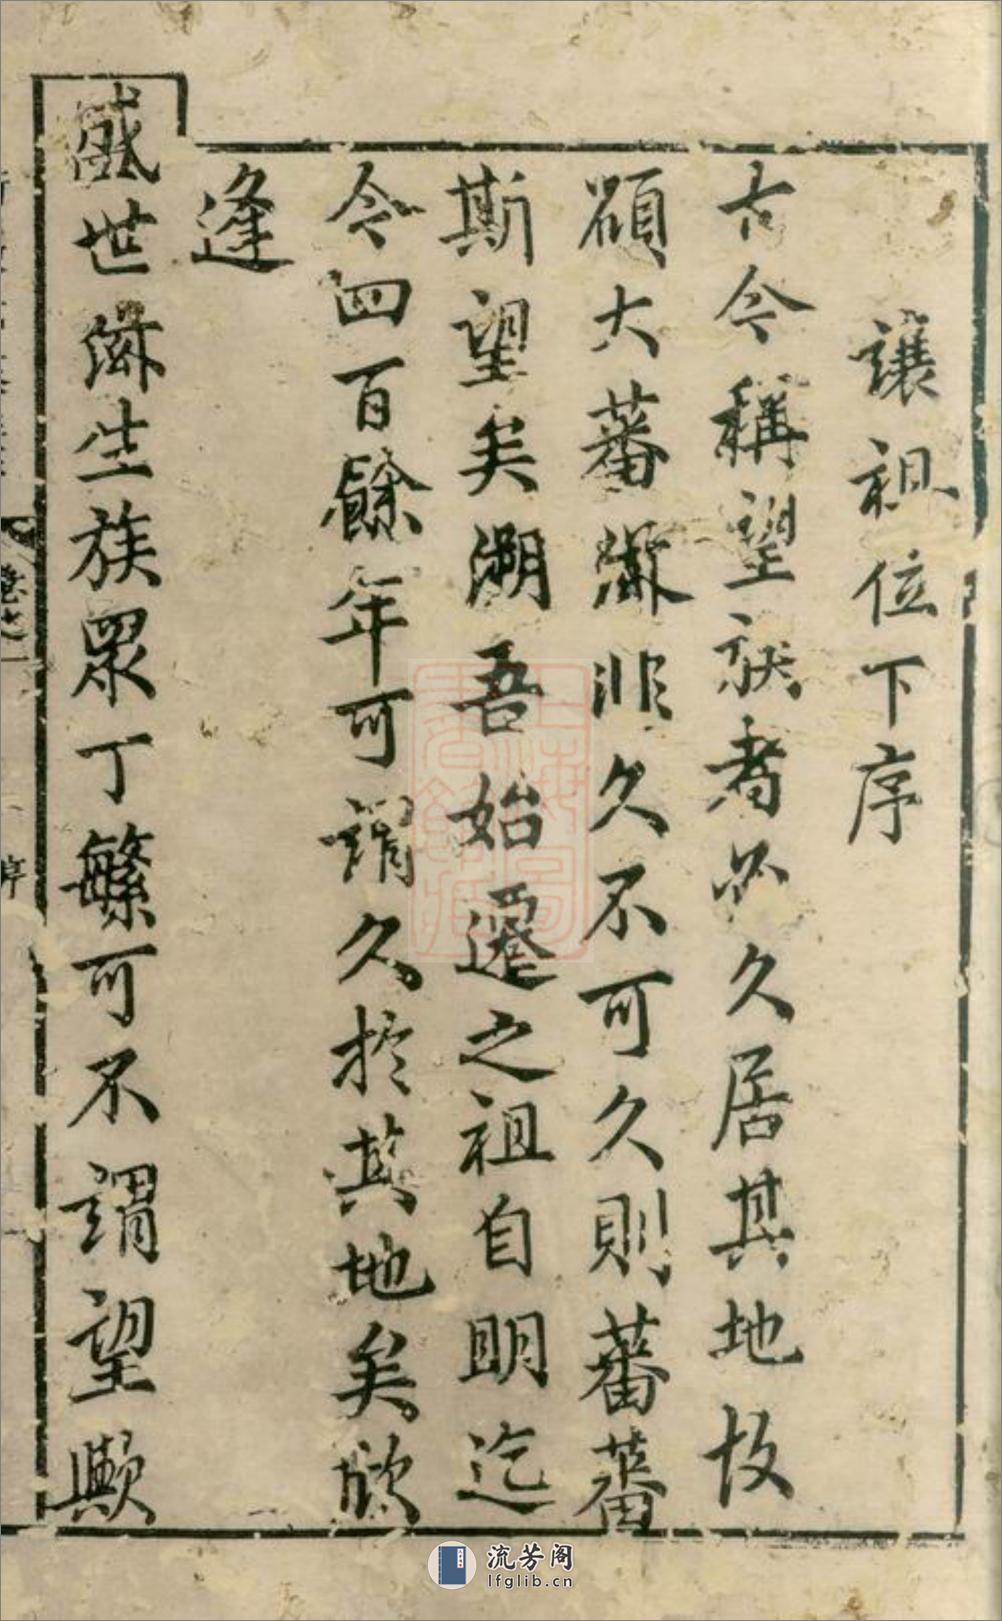 讓祖位下序
古今稱望族者必久居其地故
碩大蕃滋非久不可久則蕃蕃
斯望矣溯吾始遷之祖自明迄
今四百餘年可謂久於其地矣欣
逢
盛世滋生族眾丁繁可不謂望歟
序
流芳阁
lfglib.cn